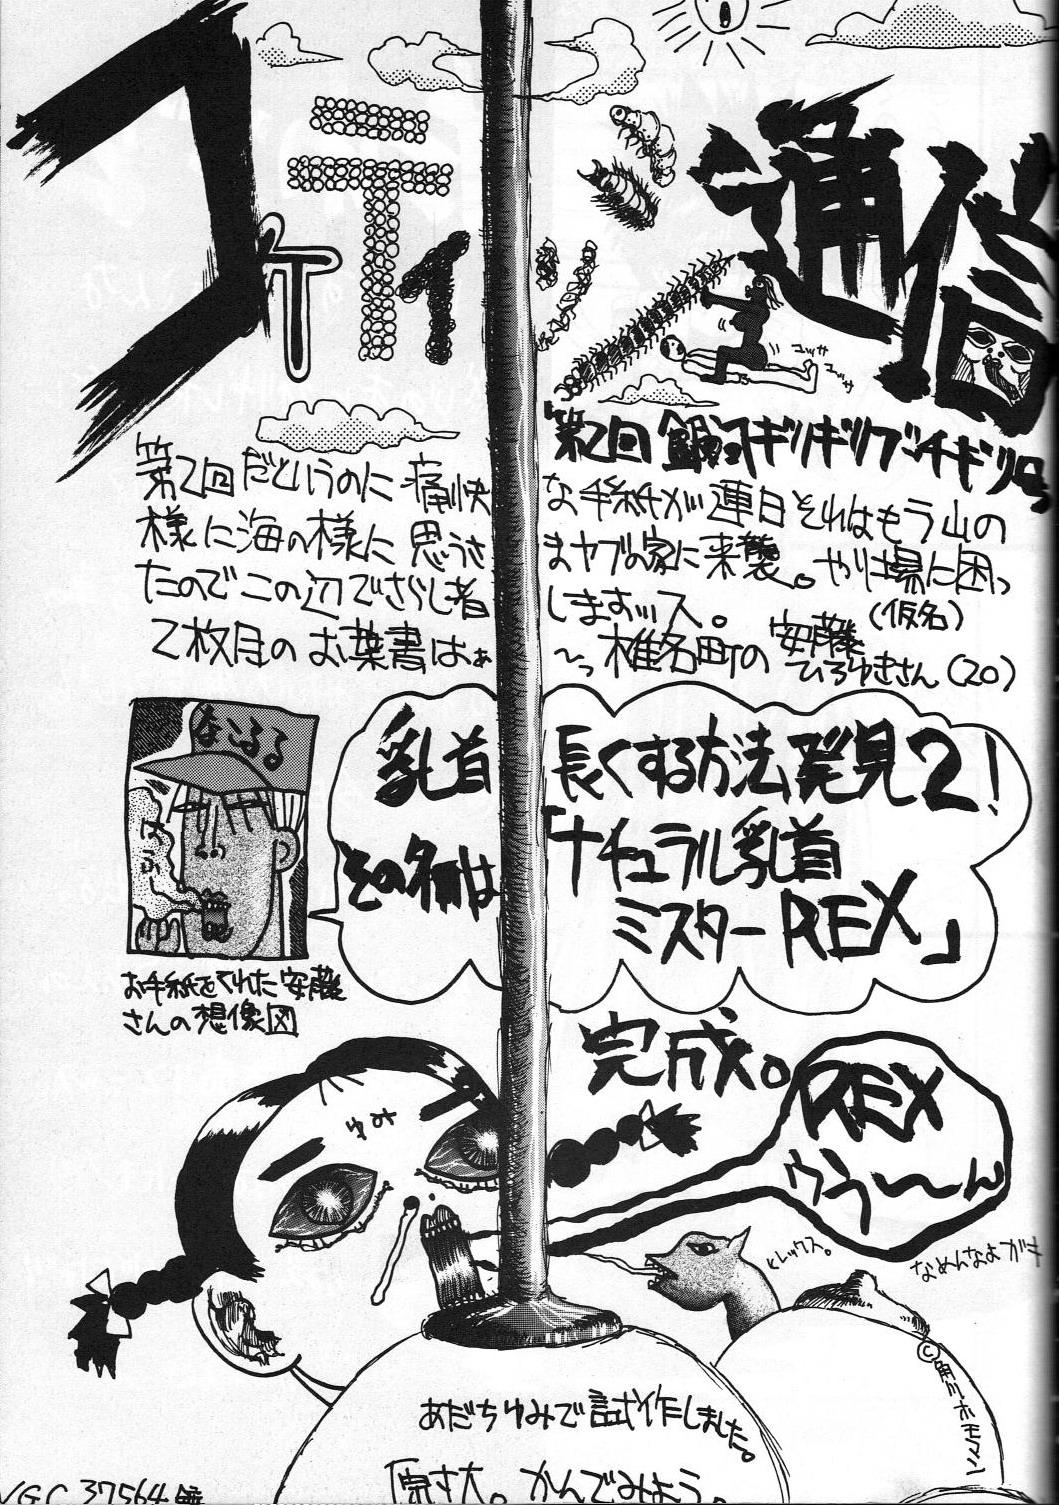 通信
コッサ
コッサ
第2回だというのに痛快な手紙が連日それはもう山の
様に海の様に思うさまヤブの家に来襲。やり場に困っ
たのでこの辺でさらし者にしますッス。
2枚目のお葉書はぁ〜っ椎名町の安藤ひろゆきさん(20)
(仮名)
なこるる
はふ
乳首長くする方法発見2!
その名は「ナチュラル乳首
ミスターREX」
お手紙をくれた安藤
さんの想像図
完成。
REX
ゥぅ〜〜ん
ゆみ
とレックス。
なめんなよガキ
あだちゆみで試作しました。
原寸大。かんでみよう。